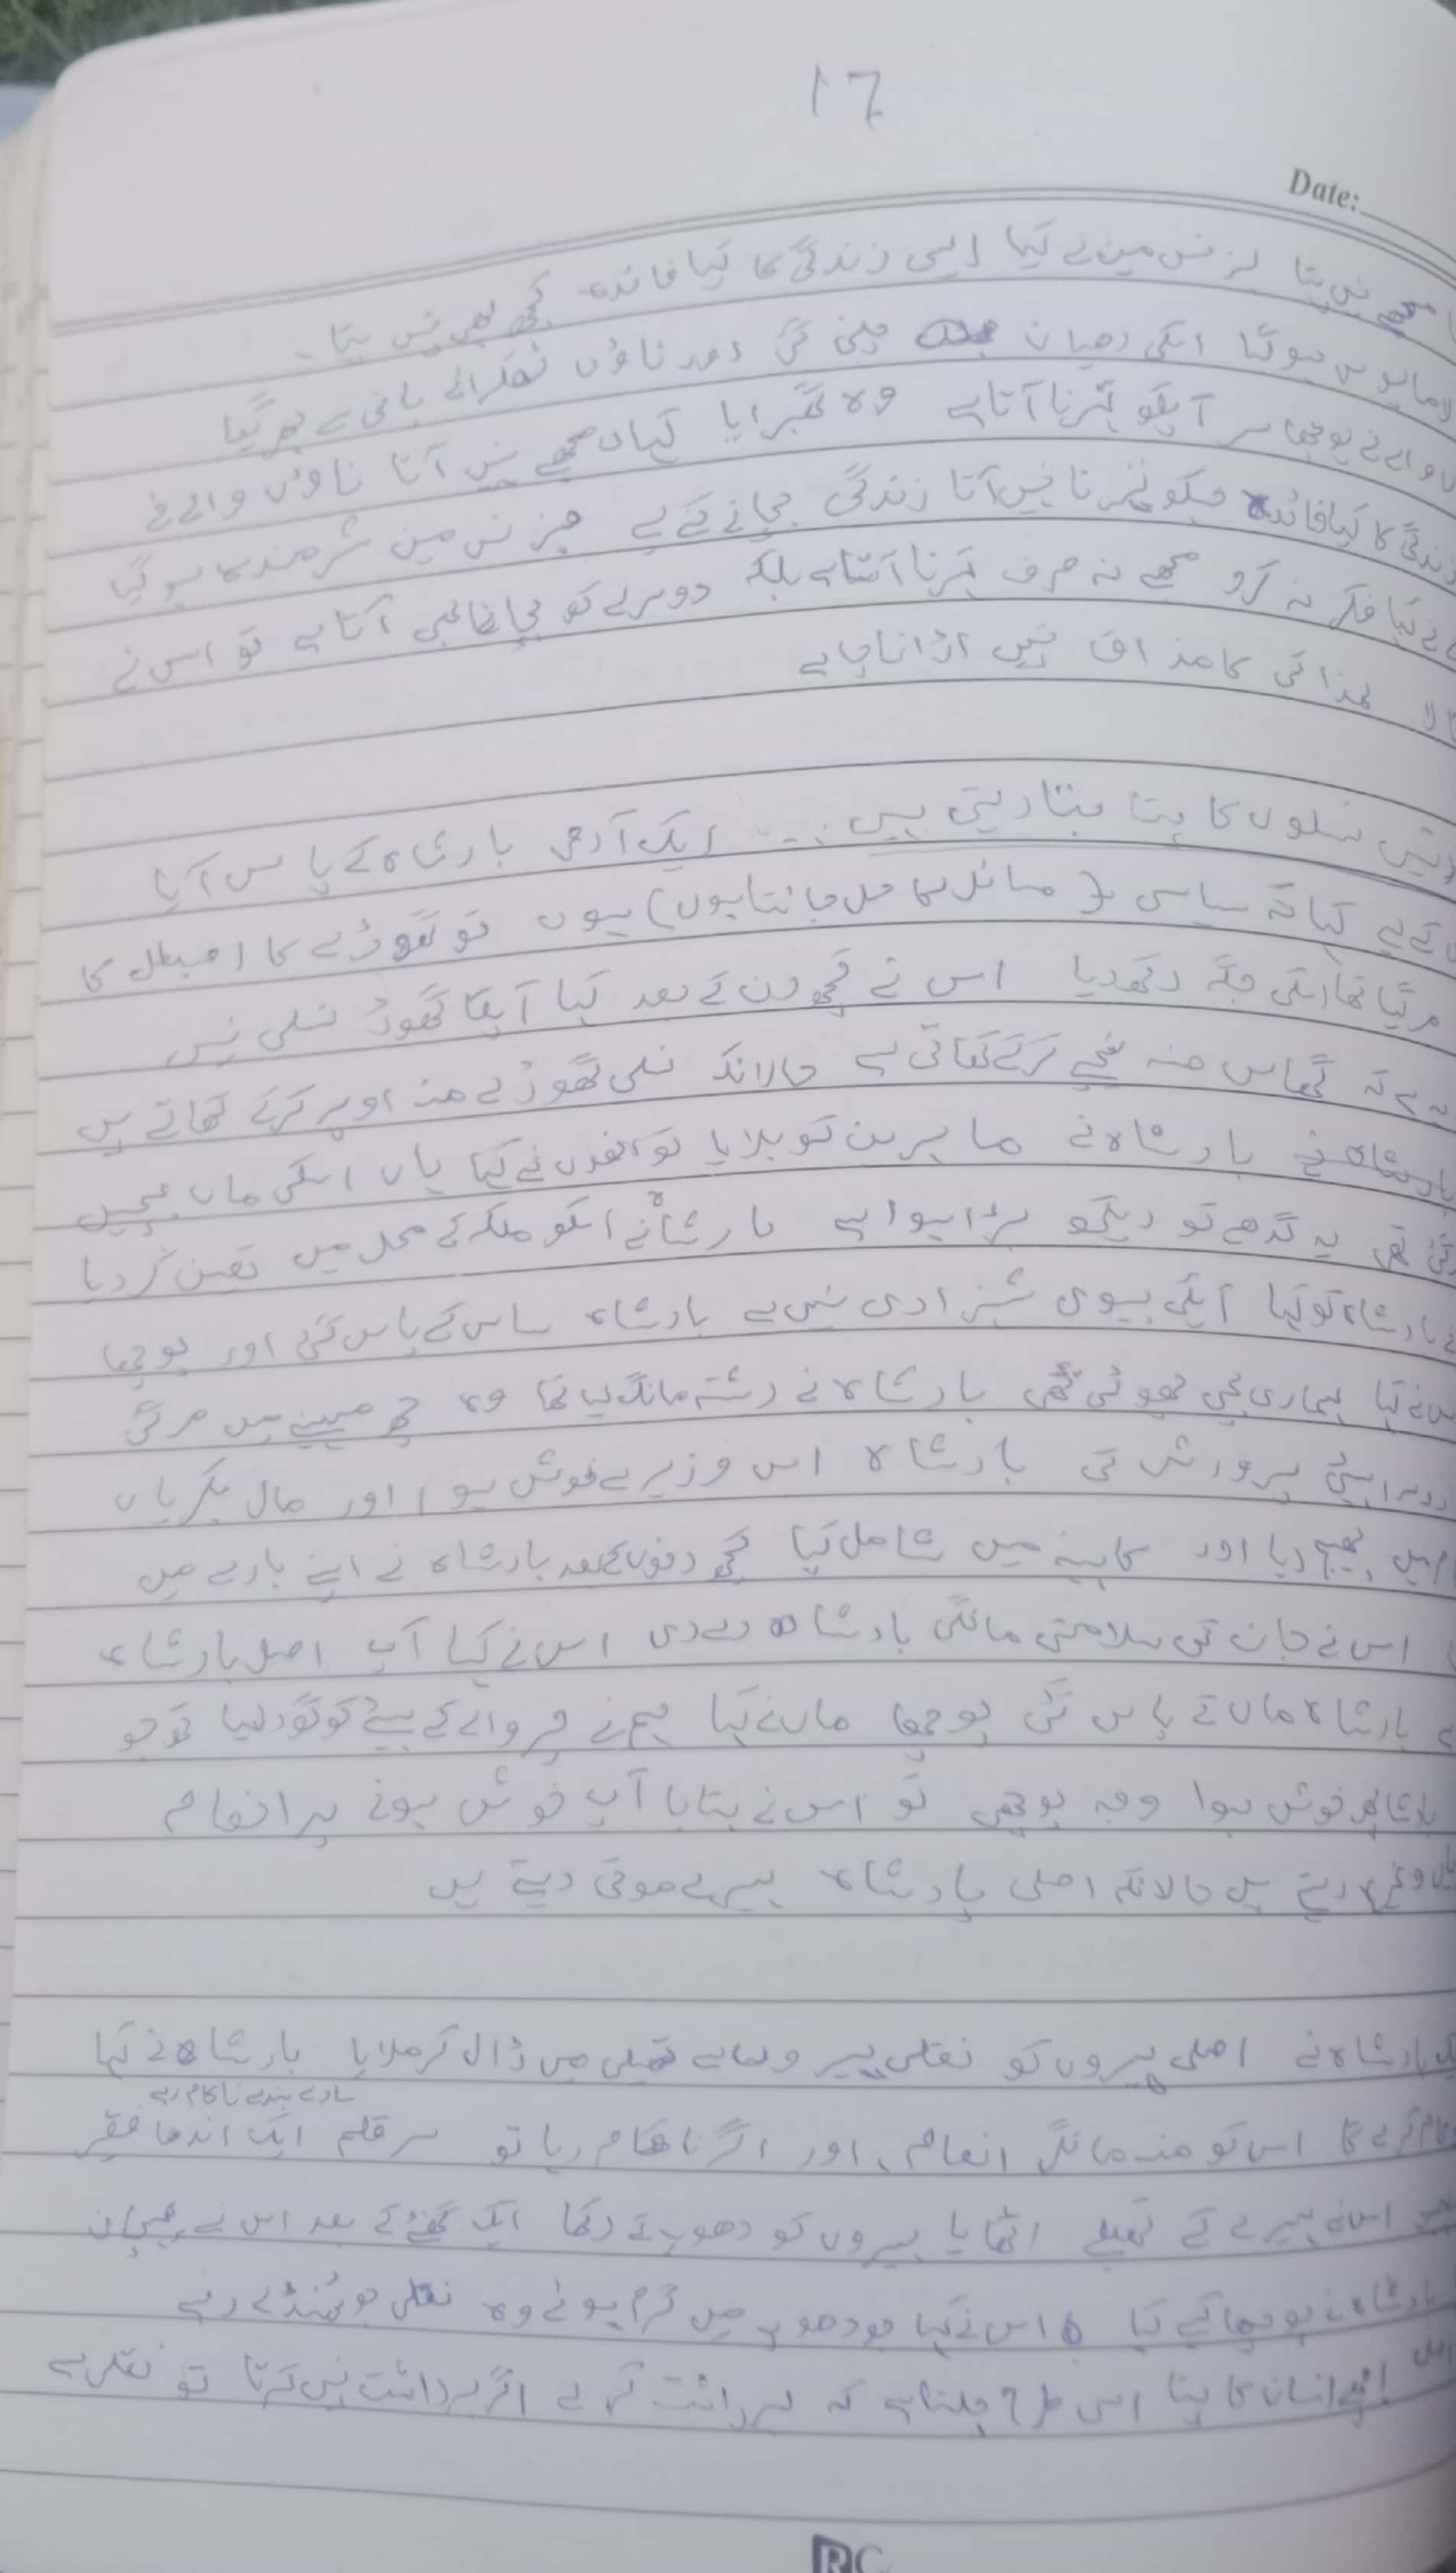 17
Date:
نہیں پتا بزنس مین نے کہا ایسی زندگی کا کیا فائدہ کچھ بھی نہیں پتا۔
مایوس ہوگیا اسکی دھیان چلی گئی اور ناؤں ٹھکرائے پانی سے بھر گیا
والے نے پوچھا سر آپکو تیرنا آتا ہے وہ گھبرایا کہاں مجھے نہیں آتا ناوں والے نے
زندگی کا کیا فائدہ جسکو تیرنا نہیں آتا زندگی بچانے کے لیے بزنس مین شرمندہ ہوگیا
نے کہا فکر نہ کرو مجھے نہ صرف تیرنا آتا ہے بلکہ دوسرے کو بچانا بھی آتا ہے تو اس نے
لہذا کسی کا مذاق نہیں اڑانا چاہیے
نسلوں کا پتا بتا دیتی ہیں :۔ ایک آدمی بادشاہ کے پاس آیا
کے لیے کہا کہ سیاسی (مسائل کا حل جانتا ہوں) ہوں تو گھوڑے کا اصطبل کا
مر گیا تھا اسکی جگہ رکھ دیا اس نے کچھ دن کے بعد کہا آپکا گھوڑ نسلی نہیں
ہے کہ گھاس منہ نیچے کرکے کھاتی ہے حالانکہ نسلی گھوڑے منہ اوپر کرکے کھاتے ہیں
بادشاہ نے ماہرین کو بلایا تو انھوں نے کہا ہاں اسکی ماں بچپن
گئی تھی یہ گدھے کو دیکھ بڑا ہوا ہے بادشاہ نے اسکو ملکہ کے محل میں تعین کر دیا
بادشاہ کو کہا آپکی بیوی شہزادی نہیں ہے بادشاہ ساس کے پاس گئی اور پوچھا
اس نے کہا ہماری بچی چھوٹی تھی بادشاہ نے رشتہ مانگ لیا تھا وہ چھ مہینے میں مر گئی
پرورش کی بادشاہ اس وزیر سے خوش ہوا اور مال بکریاں
بھیج دیا اور کابینہ میں شامل کیا کچھ دنوں کے بعد بادشاہ نے اپنے بارے میں
اس نے جان کی سلامتی مانگی بادشاہ دے دی اس نے کہا آپ اصل بادشاہ
بادشاہ ماں کے پاس گئی پوچھا ماں نے کہا ہم نے چرواہے کے بیٹے کو گود لیا تو جو
خوش ہوا وجہ پوچھی تو اس نے بتایا آپ خوش ہونے پر انعام
دیتے ہیں حالانکہ اصلی بادشاہ ہیرے موتی دیتے ہیں
بادشاہ نے اصلی ہیروں کو نقلی ہیروں تھیلی میں ڈال کر ملایا بادشاہ نے کہا
سارے بندے ناکام رہے
کام کرے گا اس کو منہ مانگی انعام، اور اگر ناکام رہا تو سر قلم ایک اندھا فقیر
اس نے ہیرے کے تھیلے اٹھایا ہیروں کو دھوپ کے رکھا ایک گھنٹے کے بعد اس نے پہچان
بادشاہ نے پوچھا کیسے کیا اس نے کہا جو دھوپ میں گرم ہوئے وہ نقلی جو ٹھنڈے رہے
اچھے انسان کا پتا اس طرح چلتا ہے کہ برداشت کرے اگر برداشت نہیں کرتا تو نقلی ہے
RC